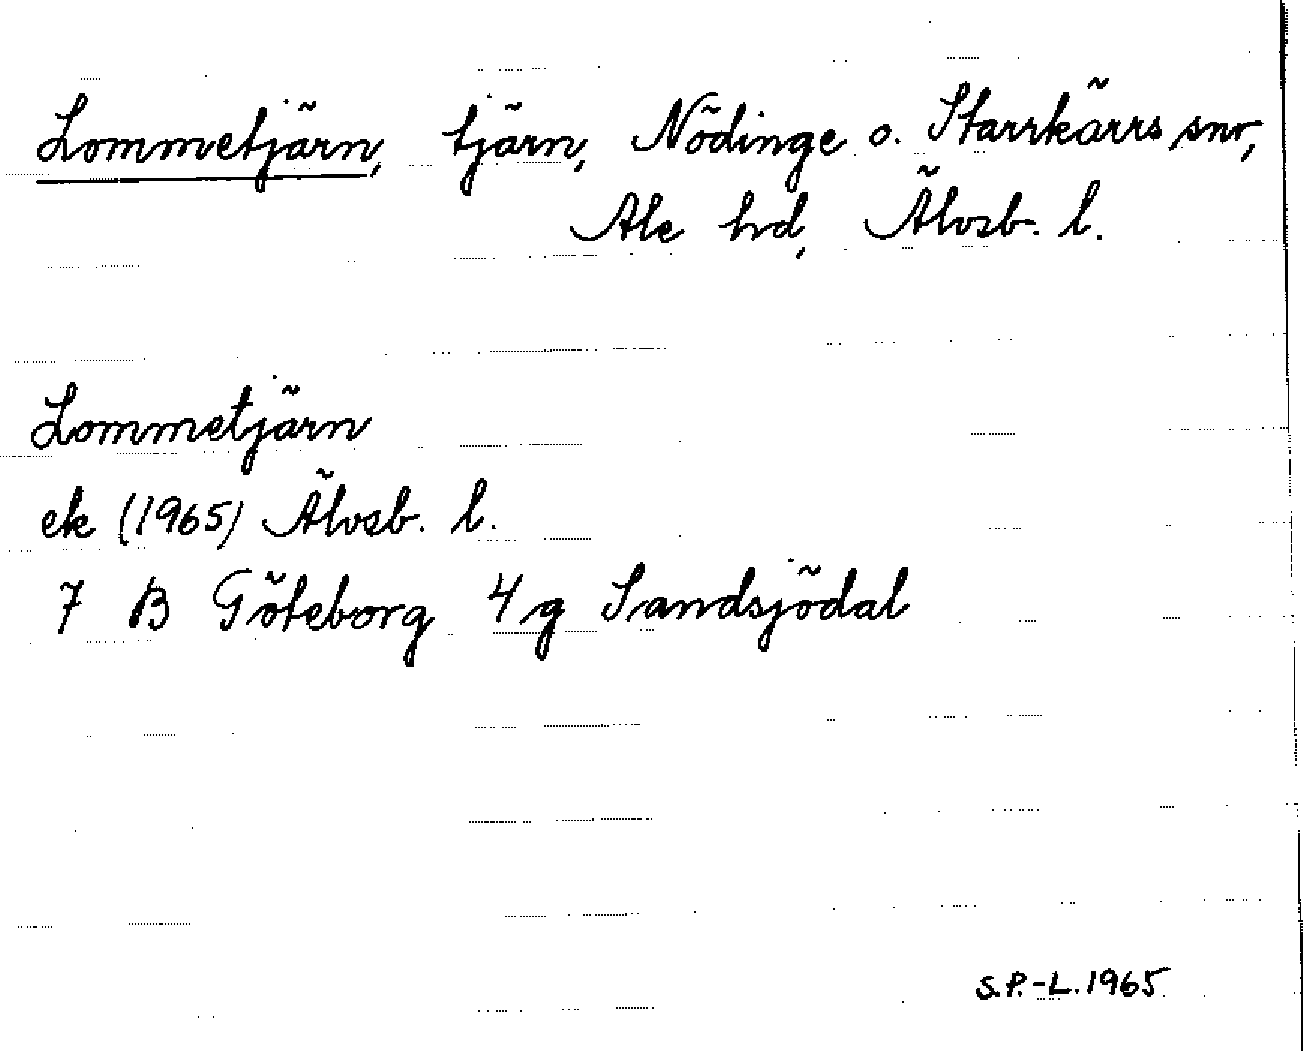 Lommetjärn, tjärn, Nödinge o. Starrkärrs snr,
Ale hd, Älvsb. l.
Lommetjärn
ek (1965) Älvsb. l.
7 B Göteborg 4 g Sandsjödal
S.P.-L. 1965